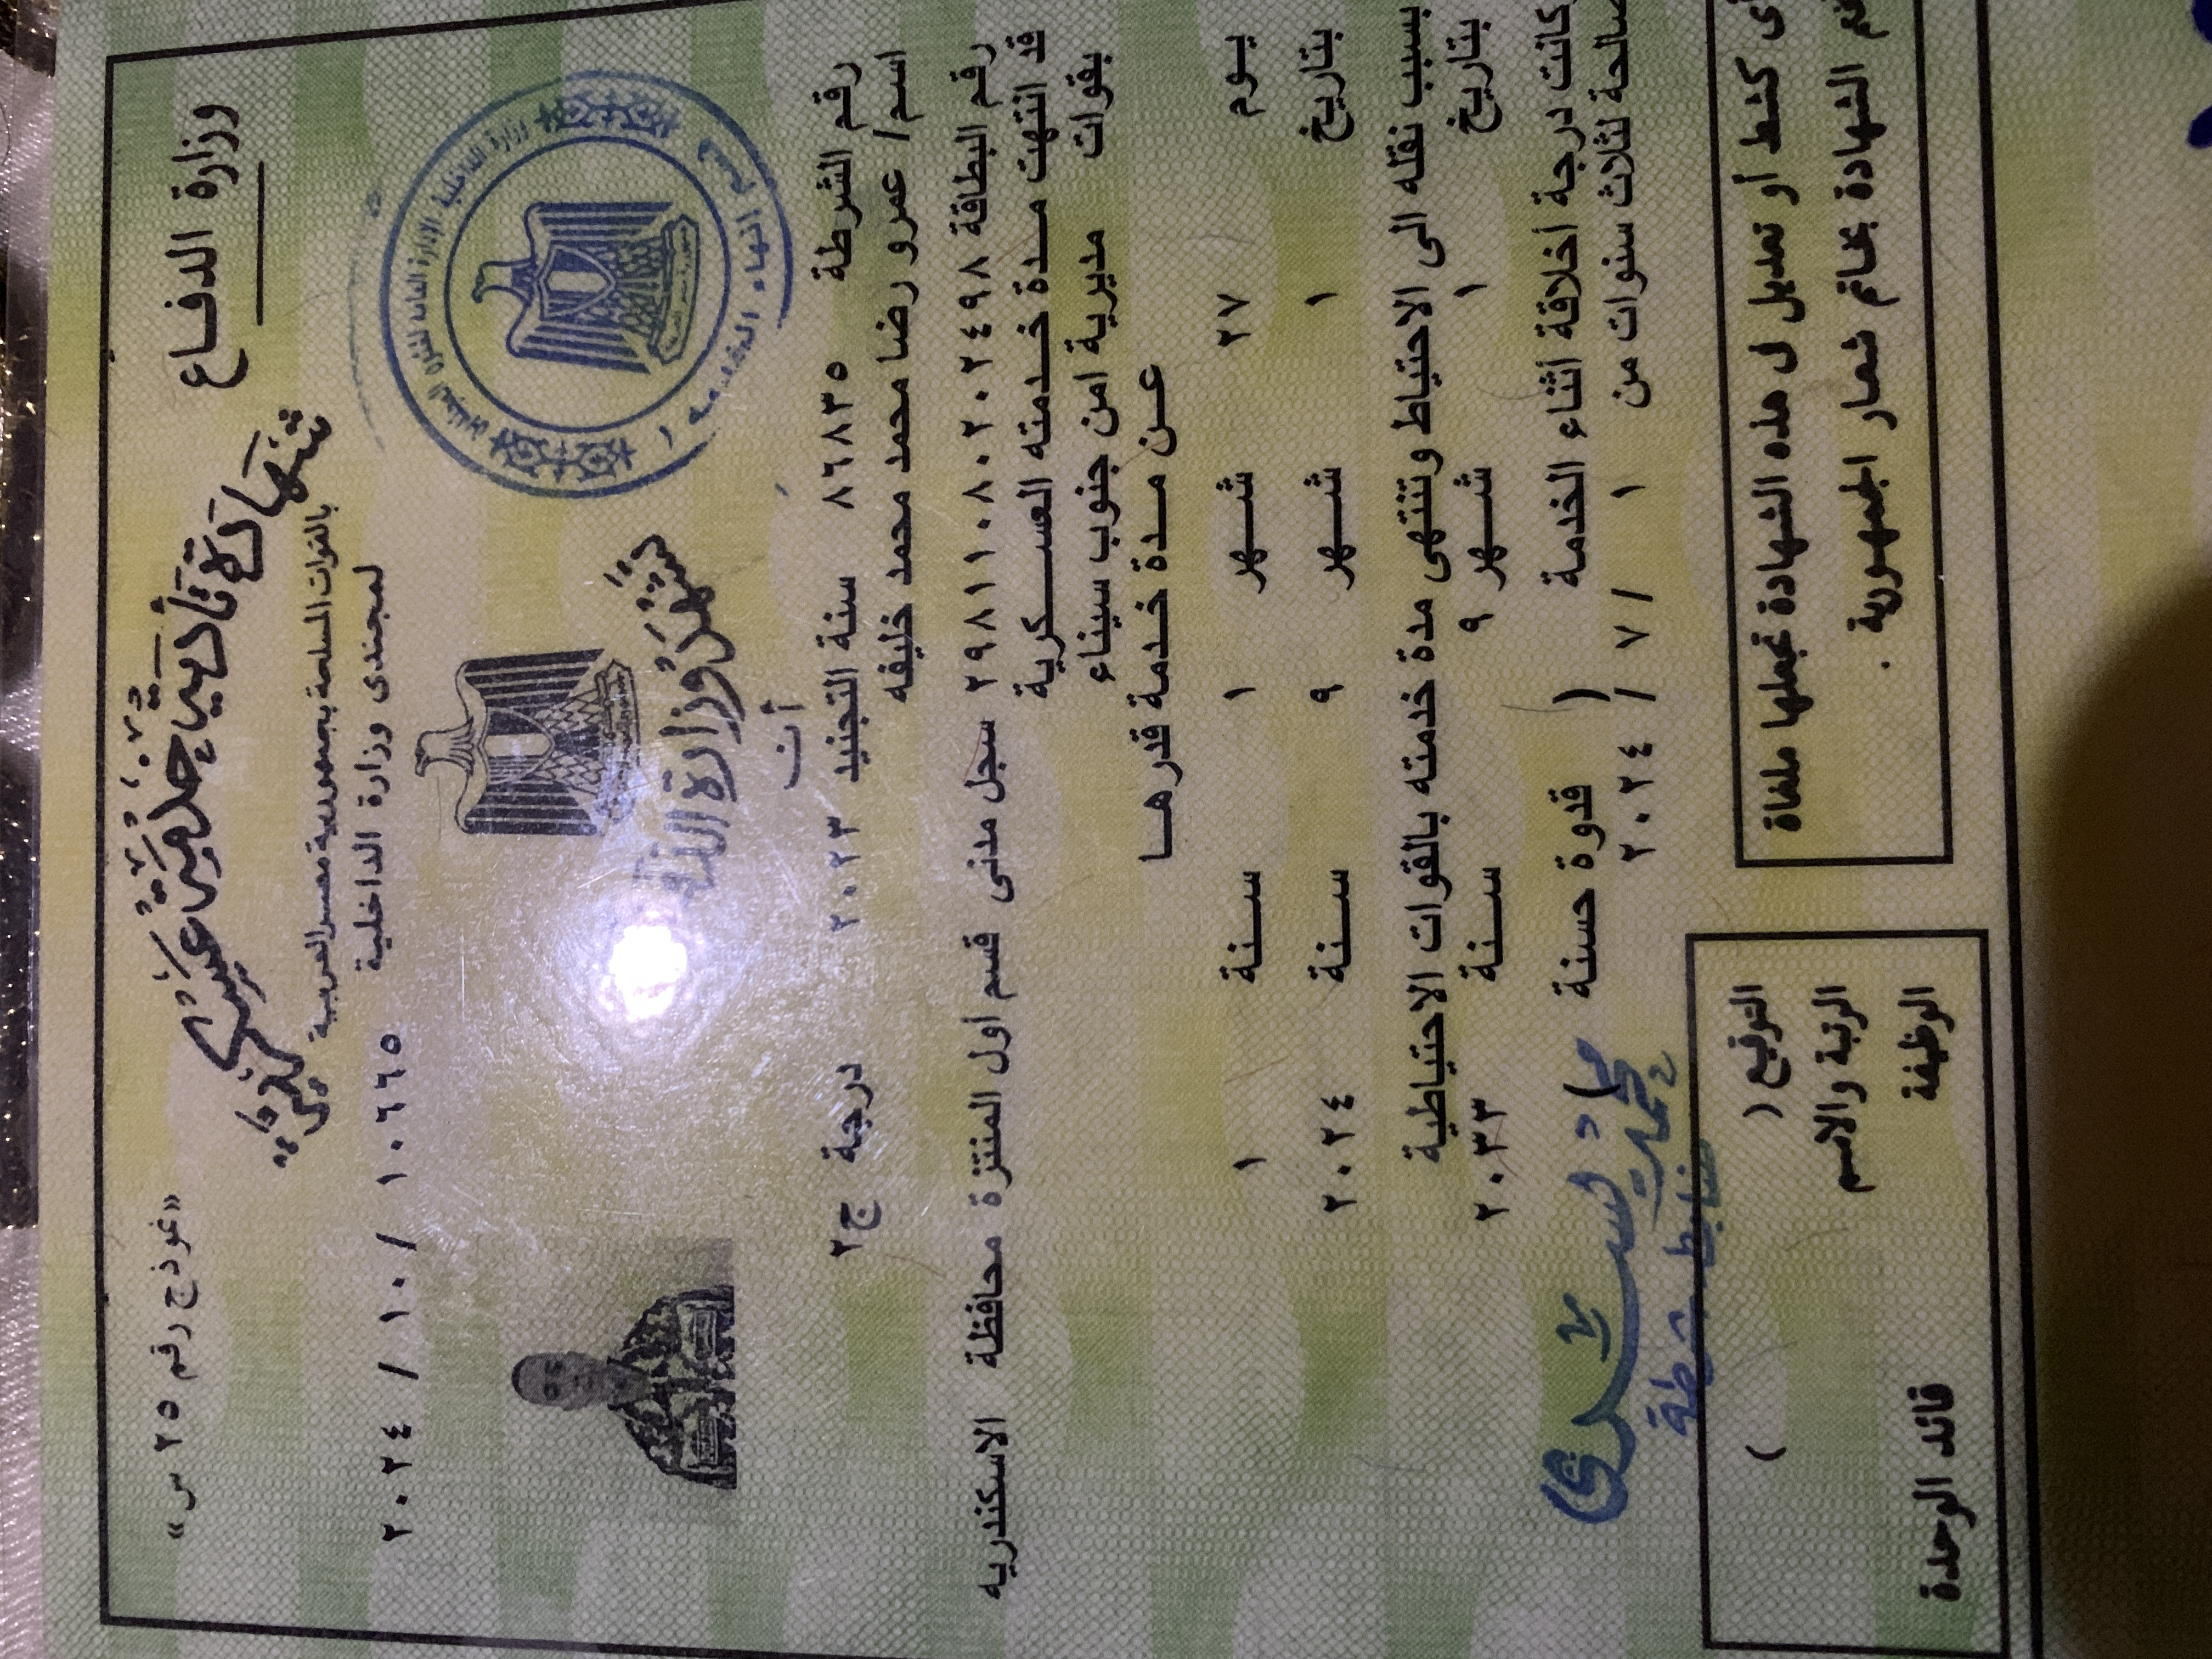 وزارة الدفاع
«نموذج رقم ٢٥ س»
شهادة تأدية الخدمة العسكرية
بالقوات المسلحة بجمهورية مصر العربية
لمجندى وزارة الداخلية
١٠٦٦٥ / ١٠ / ٢٠٢٤
تشهد وزارة الدفاع
أن
رقم الشرطة ٨٦٨٣٥ سنة التجنيد ٢٠٢٣ درجة ج٢
اسم/ عمرو رضا محمد محمد خليفه
رقم البطاقة ٢٩٨١١٠٨٠٢٠٢٤٩٨ سجل مدنى قسم أول المنتزة محافظة الاسكندريه
قد انتهت مدة خدمته العسكرية
بقوات مديرية امن جنوب سيناء
عن مدة خدمة قدرها
يوم ٢٧ شهر ١ سنة ١
بتاريخ ١ شهر ٩ سنة ٢٠٢٤
بسبب نقله الى الاحتياط وتنتهى مدة خدمته بالقوات الاحتياطية
بتاريخ ١ شهر ٩ سنة ٢٠٣٣
كانت درجة أخلاقة أثناء الخدمة ( قدوة حسنة )
صالحة لثلاث سنوات من ١ / ٧ / ٢٠٢٤
أى كشط أو تعديل فى هذه الشهادة تجعلها ملغاة
الشهادة بخاتم شعار الجمهورية .
التوقيع ( )
الرتبة والاسم
الوظيفة قائد الوحدة